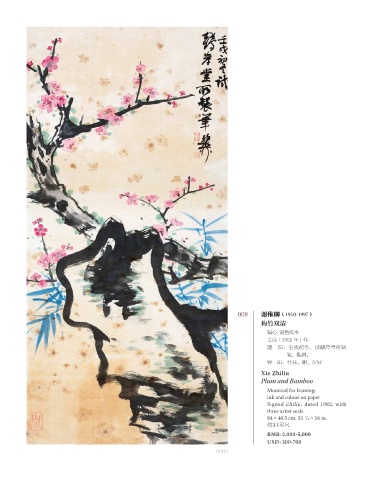 壬戌初冬试
鹤岸堂所制笔 稚
008
谢稚柳（1910-1997）
梅竹双清
镜心 设色纸本
壬戌（1982年）作
Xie Zhiliu
Plum and Bamboo
Mounted for framing;
ink and colour on paper
Signed Zhiliu, dated 1982, with
three artist seals
84 × 40.5 cm. 33 1/8 × 16 in.
约3.1平尺
RMB: 2,000-5,000
USD: 300-700